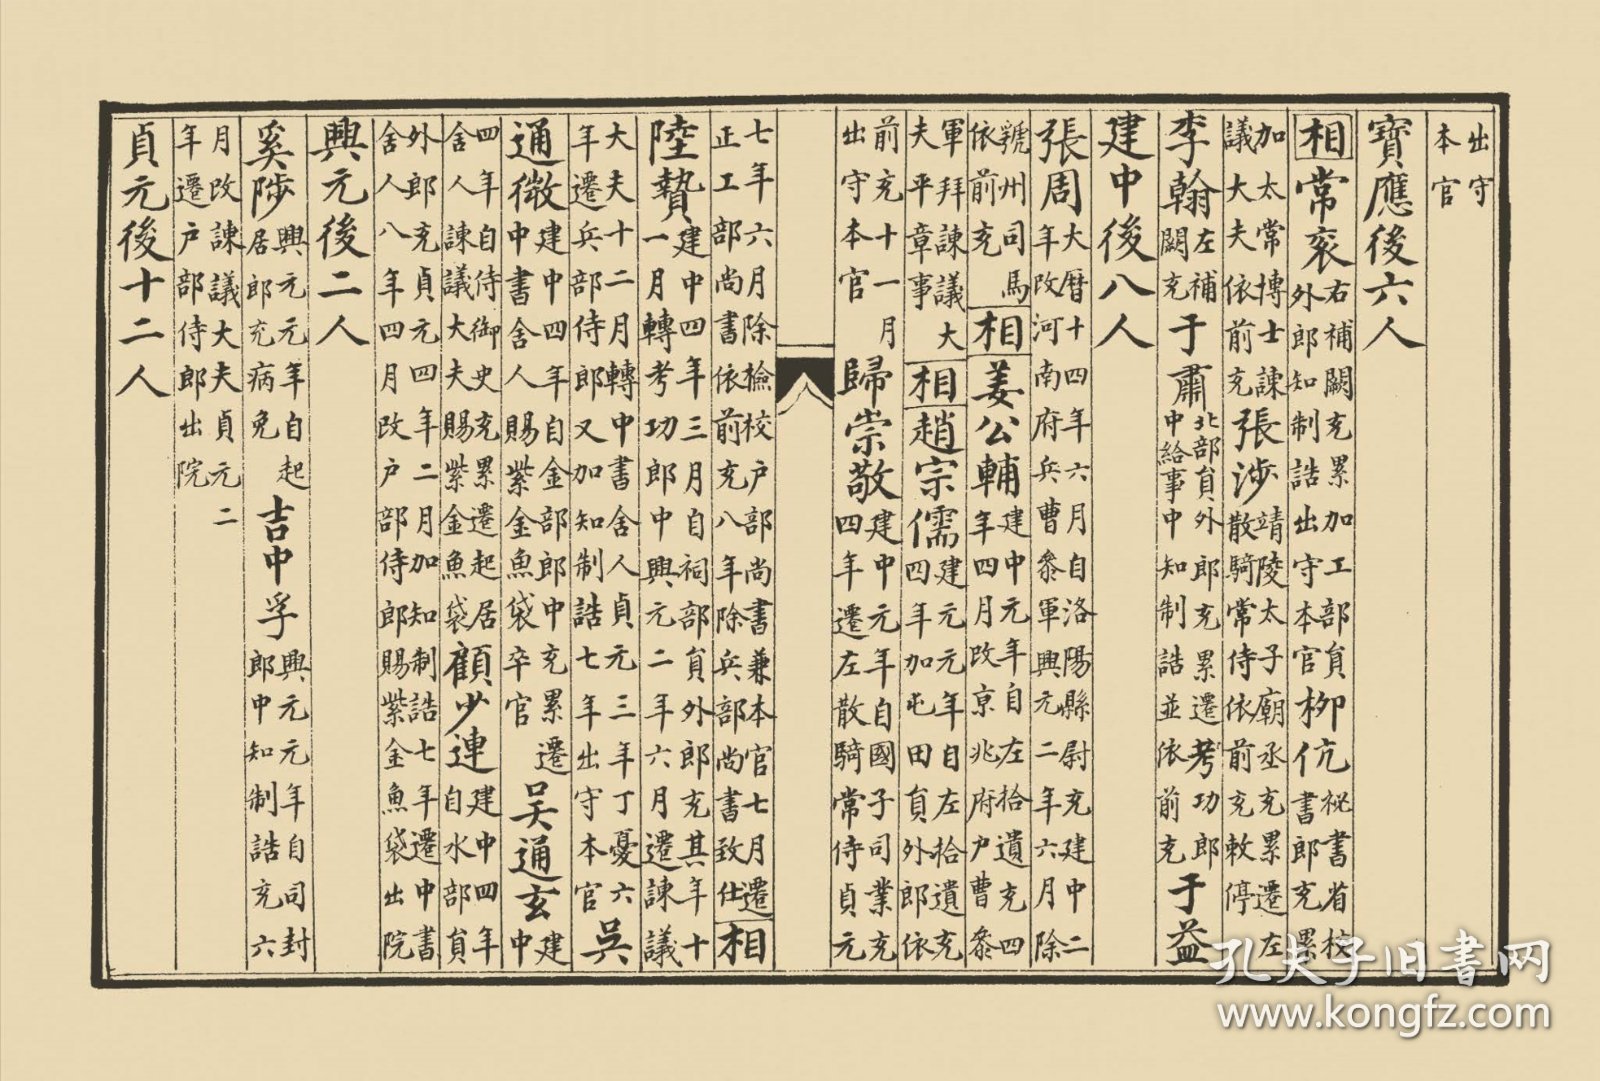 出守
本官
寶應後六人
相常衮右補闕充累加工部員
外郎知制誥出守本官柳伉祕書省校
書郎充累
加太常博士諫
議大夫依前充張涉靖陵太子廟丞充累遷左
散騎常侍依前充敕停
李翰左補
闕充于肅北部員外郎充累遷考功郎
中給事中知制誥並依前充于益
建中後八人
張周大曆十四年六月自洛陽縣尉充建中二
年改河南府兵曹叅軍興元二年六月除
虢州司馬
依前充相姜公輔建中元年自左拾遺充四
年四月改京兆府户曹叅
軍拜諫議大
夫平章事相趙宗儒建元元年自左拾遺充
四年加屯田員外郎依
前充十一月
出守本官歸崇敬建中元年自國子司業充
四年遷左散騎常侍貞元
七年六月除檢校户部尚書兼本官七月遷
正工部尚書依前充八年除兵部尚書致仕相
陸贄建中四年三月自祠部員外郎充其年十
一月轉考功郎中興元二年六月遷諫議
大夫十二月轉中書舍人貞元三年丁憂六
年遷兵部侍郎又加知制誥七年出守本官吳
通微建中四年自金部郎中充累遷
中書舍人賜紫金魚袋卒官吴通玄建
中
四年自侍御史充累遷起居
舍人諫議大夫賜紫金魚袋顧少連建中四年
自水部員
外郎充貞元四年二月加知制誥七年遷中書
舍人八年四月改户部侍郎賜紫金魚袋出院
興元後二人
奚陟興元元年自起
居郎充病免吉中孚興元元年自司封
郎中知制誥充六
月改諫議大夫貞元二
年遷户部侍郎出院
貞元後十二人
孔夫子旧书网
www.kongfz.com